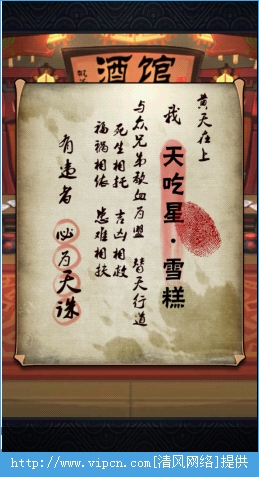 酒馆
黄天在上
我 天吃星·雪糕
与众兄弟歃血为盟 替天行道
死生相托 吉凶相救
福祸相依 患难相扶
有违者 必为天诛
http://www.vipcn.com[清风网络]提供